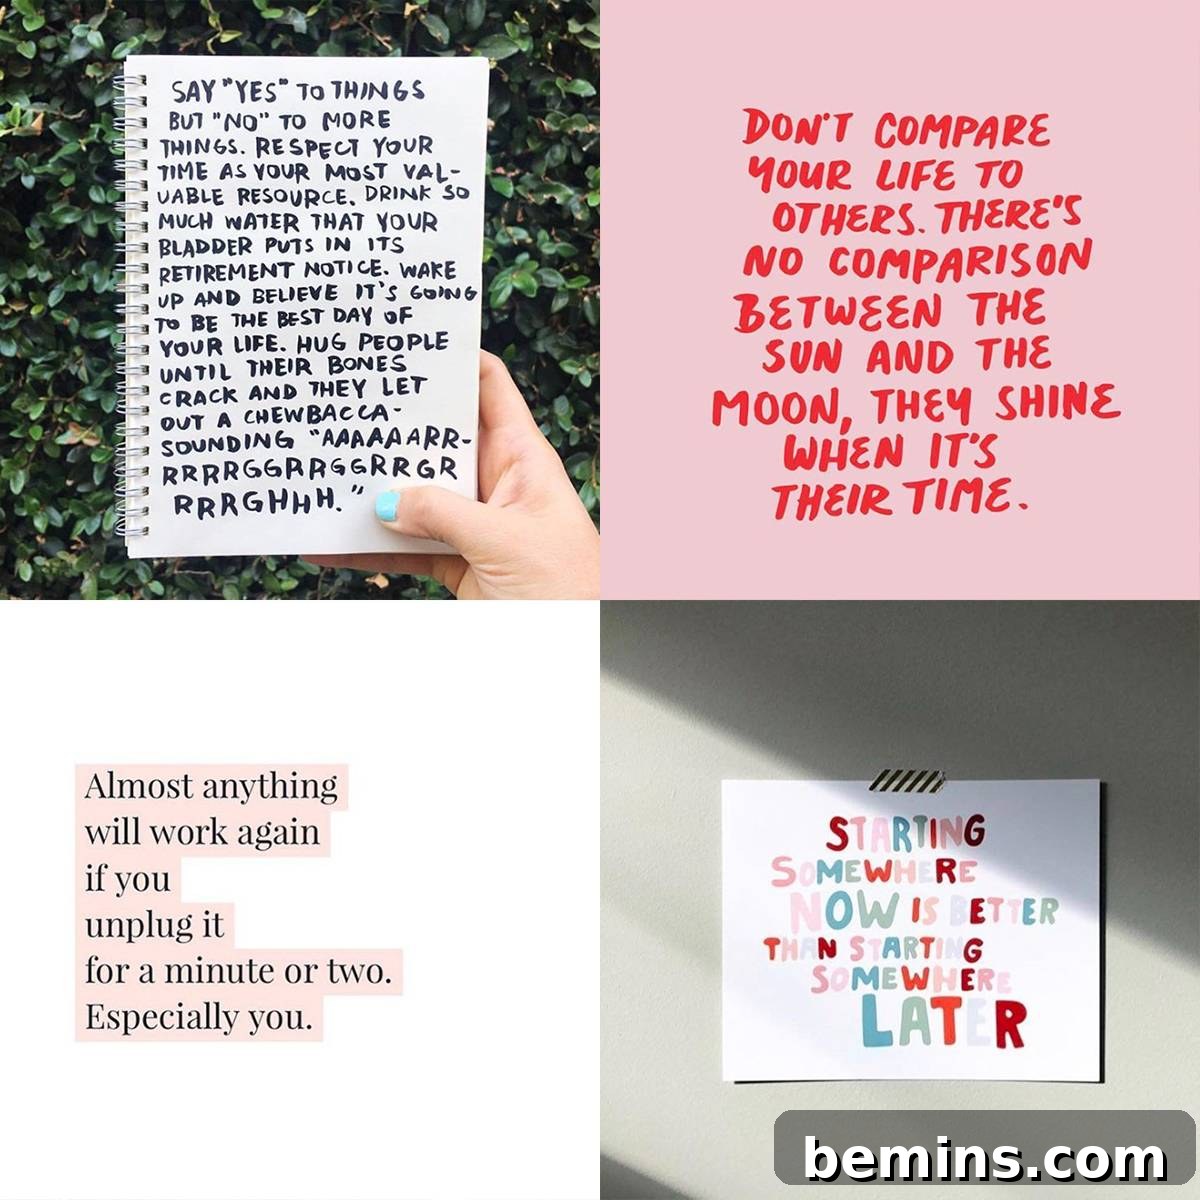 SAY "YES" TO THINGS
BUT "NO" TO MORE
THINGS. RESPECT YOUR
TIME AS YOUR MOST VAL-
UABLE RESOURCE. DRINK SO
MUCH WATER THAT YOUR
BLADDER PUTS IN ITS
RETIREMENT NOTICE. WAKE
UP AND BELIEVE IT'S GOING
TO BE THE BEST DAY OF
YOUR LIFE. HUG PEOPLE
UNTIL THEIR BONES
CRACK AND THEY LET
OUT A CHEWBACCA-
SOUNDING "AAAAAARR-
RRRRGGRRGGRRGR
RRRGHHH."
DON'T COMPARE
YOUR LIFE TO
OTHERS. THERE'S
NO COMPARISON
BETWEEN THE
SUN AND THE
MOON, THEY SHINE
WHEN IT'S
THEIR TIME.
Almost anything
will work again
if you
unplug it
for a minute or two.
Especially you.
STARTING
SOMEWHERE
NOW IS BETTER
THAN STARTING
SOMEWHERE
LATER
bemins.com